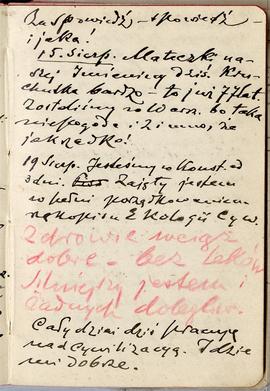 Zaspowiedź – spowiedź –
i jaka!
15. Sierp. Mateczk. na-
szej Imieniny dziś. Kru-
chutka bardzo – to już 77 lat.
Zostaliśmy w Warsz. bo taka
niepogoda i zimno, że
jak rzadko!
19 Sierp. Jesteśmy w Konst. od
3 dni. Zajęty jestem
w pełni porządkowaniem
rękopisu Ekologii Cyw.
Zdrowie wciąż
dobre – bez leków
Mniejszy jestem i
żadnych dolegliw.
Cały dzień dziś pracuję
nad cywilizacją. Idzie
mi dobrze.